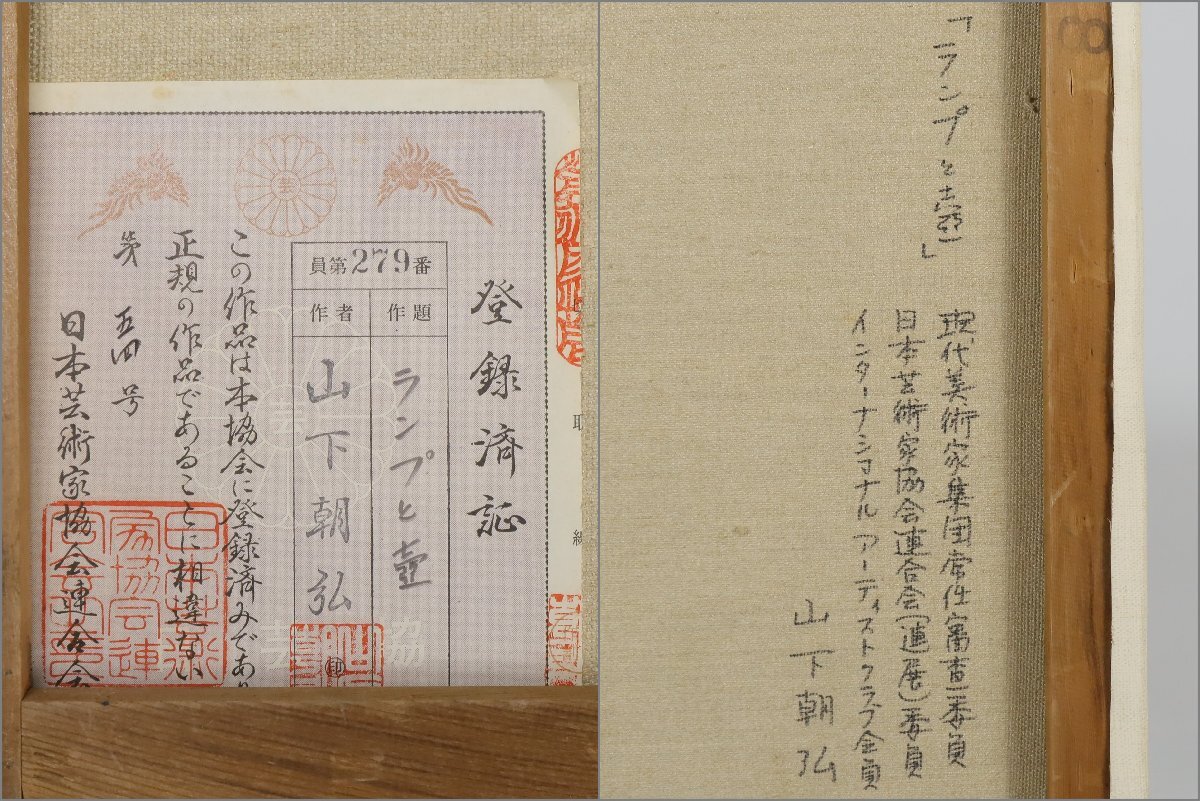 登録済証
員第279番
作題
ランプと壺
作者
山下朝弘
印
この作品は本協会に登録済みであり
正規の作品であることに相違ない
第五四号
日本芸術家協会連合会
芸
取
「ランプと壺」
現代美術家集団常任審査委員
日本芸術家協会連合会(連展)委員
インターナショナルアーティストクラブ会員
山下朝弘